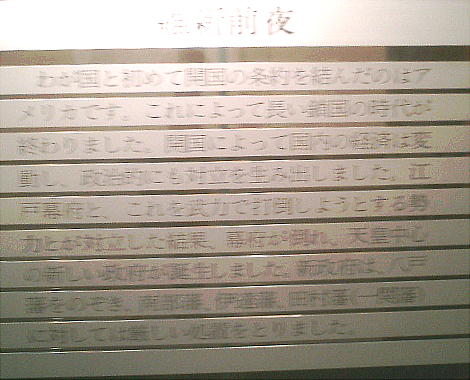 維新前夜
わが国と初めて開国の条約を結んだのはア
メリカです。これによって長い鎖国の時代が
終わりました。開国によって国内の経済は変
動し、政治的にも対立を生み出しました。江
戸幕府と、これを武力で打倒しようとする勢
力とが対立した結果、幕府が倒れ、天皇中心
の新しい政府が誕生しました。新政府は、八戸
藩をのぞき、南部藩、伊達藩、田村藩(一関藩)
に対しては厳しい処置をとりました。